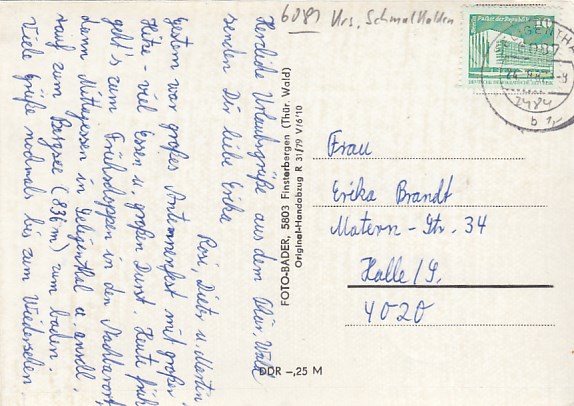 Herzliche Urlaubsgrüße aus dem Thür. Wald
senden Dir liebe Erika
Rosi, Dieter u. Martin
Gestern war großes Anturnerfest mit großer
Hitze - viel Essen u. großen Durst. Heute früh
geht's zum Frühschoppen in den Nachbarort
dann Mittagessen in Seligenthal u. anschl.
rauf zum Bergsee (836 m) zum baden.
Viele Grüße nochmals bis zum Wiedersehen
6081 Krs. Schmalkalden
FOTO-BADER, 5803 Finsterbergen (Thür. Wald)
Original-Handabzug R 31/79 V/6'10
DDR -,25 M
Palast der Republik
10
6081
Frau
Erika Brandt
Matern-Str. 34
Halle/S.
4020
2484
b 1,-